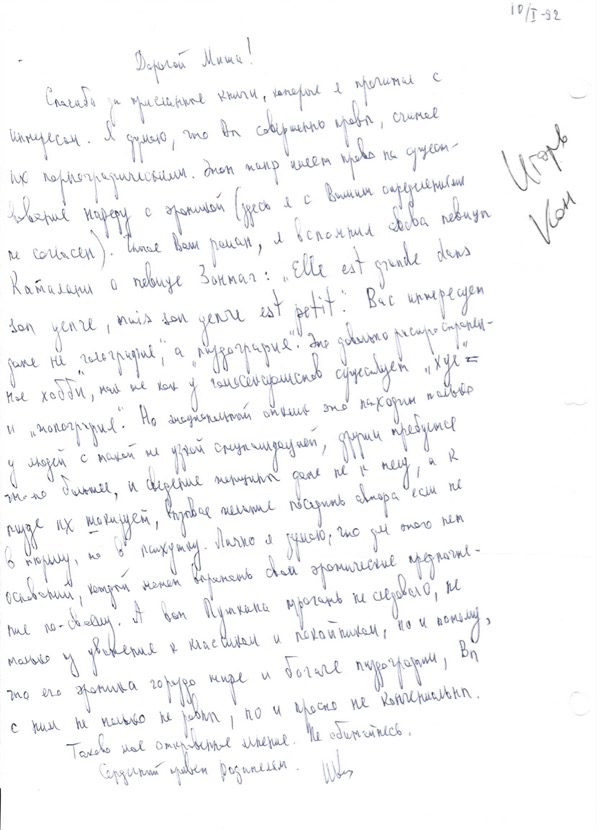 10/I-92
Дорогой Миша!
Спасибо за присланные книги, которые я прочитал с
интересом. Я думаю, что Вы совершенно правы, считая
их порнографическими. Этот жанр имеет право на сущест-
вование наряду с эротикой (здесь я с Вашим определением
не согласен). Читая Ваш роман, я вспомнил слова певицы
Каталани о певице Зонтаг: "Elle est grande dans
son genre, mais son genre est petit". Вас интересует
даже не "гинография", а "пиздография". Это довольно распространен-
ное хобби, так же как у гомосексуалистов существует "хуе"=
и "жопография". Но эмоциональный отклик это находит только
у людей с такой же узкой специализацией, другим требуется
что-то большее, и сведение женщины даже не к телу, а к
пизде их шокирует, вызывая желание посадить автора если не
в тюрьму, то в психушку. Лично я думаю, что для этого нет
оснований, каждый может выражать свои эротические предпочте-
ния по-своему. А вот Пушкина трогать не следовало, не
только из уважения к классикам и покойникам, но и потому,
что его эротика гораздо шире и богаче пиздографии, Вы
с ним не только не равны, но и просто не конгениальны.
Таково мое откровенное мнение. Не обижайтесь.
Сердечный привет родителям.
Игорь
Кон